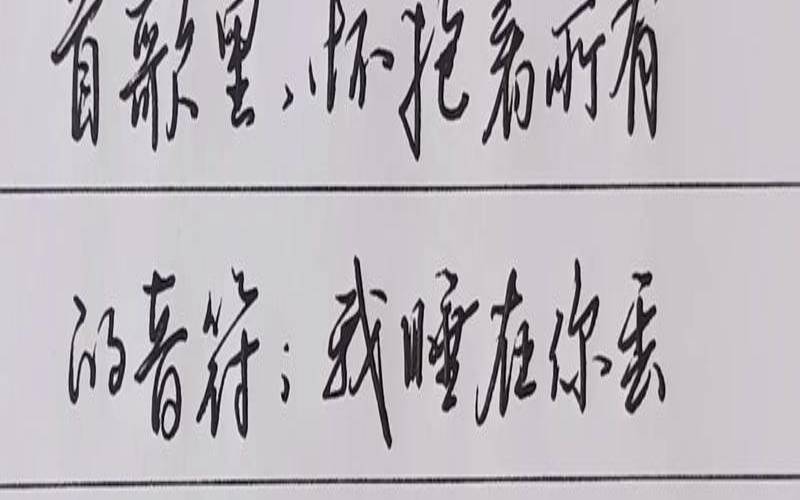 首歌里、怀抱着所有
的音符；我睡在你丢